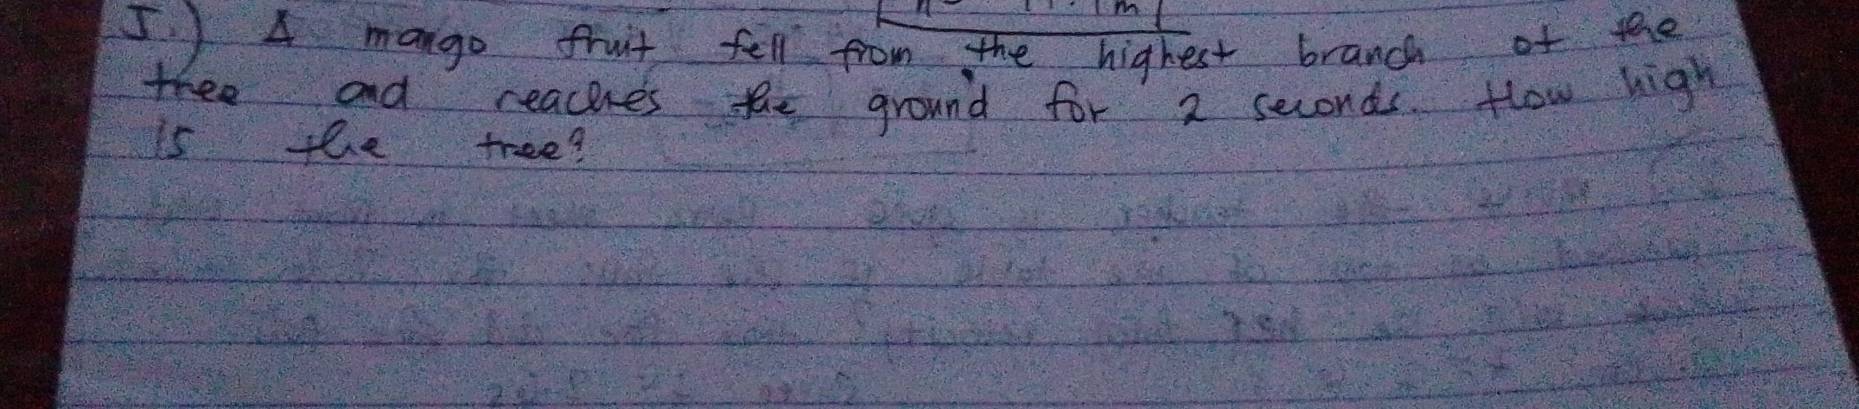 I.) A mango fruit fell from the highest branch of the
tree and reaches the ground for 2 seconds. How high
is the tree?